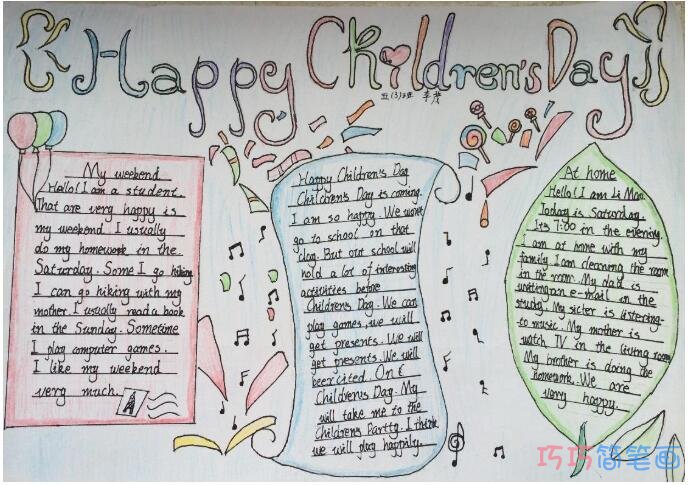 Happy Children's Day
五(3)班 李
My weekend
Hello! I am a student.
That are very happy is
my weekend. I usually
do my homework in the
Saturday. Some I go hiking
I can go hiking with my
mother. I usually read a book
in the Sunday. Sometime
I play computer games.
I like my weekend
very much.
Happy Children's Day
Children's Day is coming.
I am so happy. We won't
go to school on that
day. But our school will
hold a lot of interesting
activities before
Children's Day. We can
play games, we will
get presents. We will
get presents. We will
beexcited. On
Children's Day. My
will take me to the
Children's Partty. I think
we will play happily.
At home
Hello! I am Li Mao.
Today is Saturday.
It's 7:00 in the evening.
I am at home with my
family. I am cleanning the room
in the room. My dad is
writing an e-mail in the
study. My sister is listening
to music. My mother is
watch TV in the living room
My brother is doing the
homework. We are
very happy.
巧巧简笔画